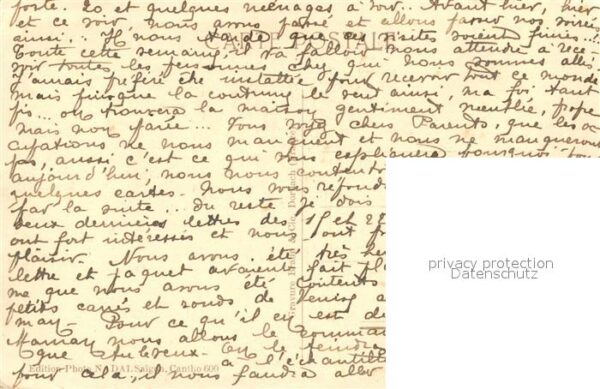 porte. 20 et quelques ménages à voir... Avant hier, hier
et ce soir nous avons passé et allons passer nos soirées
ainsi... Il nous tarde que ces visites soient finies !..
Toute cette semaine, il va falloir nous attendre à rece-
voir toutes les personnes chez qui nous sommes allés
J'aurais préféré être installée pour recevoir tout ce monde
mais puisque la coutume le veut ainsi, ma foi tant
pis... on trouvera la maison gentiment meublée, propre
mais non parée... Vous voyez chers Parents, que les oc-
cupations ne nous manquent et nous ne manquerons
pas, aussi c'est ce qui vous expliquera pourquoi
aujourd'hui, nous nous
quelques cartes. Nous vous
par la suite... du reste je dois
deux dernières lettres des 15 et 22
ont fort intéressés et nous ont
plaisir. Nous avons été très
lettre et paquet avaient fait
me que nous avons été contents
petits carrés et ronds de
Pour ce qu'il en est
Maman nous allons le
que
pour cela, il nous faudra aller
CARTE POSTALE
Edition Photo NADAL Saigon, Cantho 600
privacy protection
Datenschutz